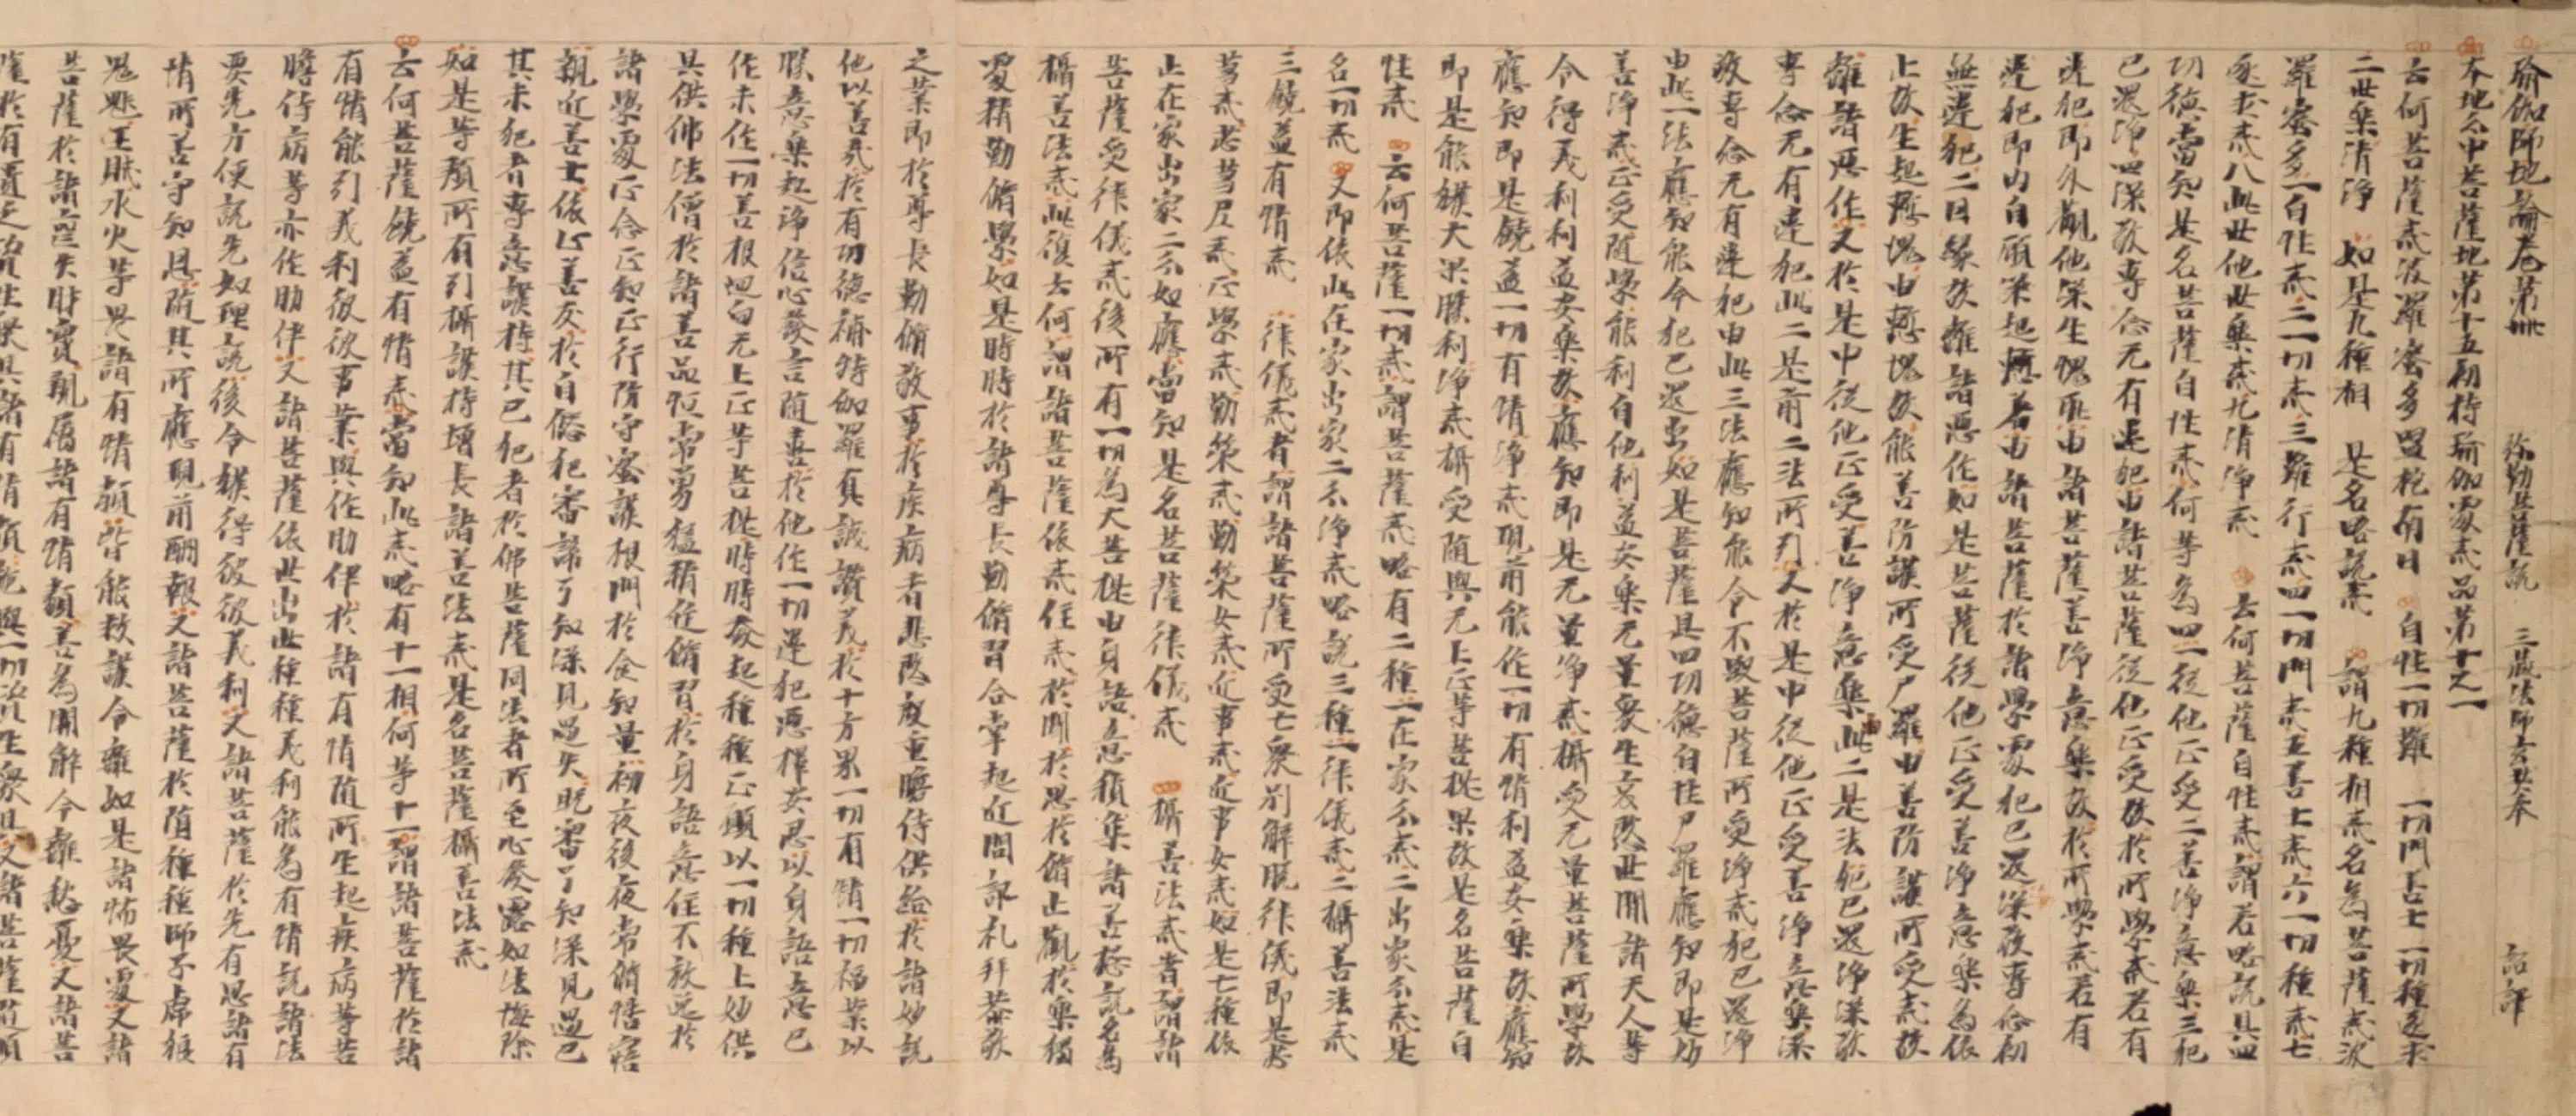 瑜伽師地論卷第卌 弥勒菩薩說 三藏法師玄奘奉 詔譯
本地分中菩薩地第十五初持瑜伽處戒品第十之一
云何菩薩戒波羅蜜多嗢柁南曰 自性一切難 一切門善士 一切種遂求
二世樂清淨 如是九種相 是名略說戒 謂九種相戒名為菩薩戒波
羅蜜多一自性戒二一切戒三難行戒四一切門戒五善士戒六一切種戒七
遂求戒八此世他世樂戒九清淨戒 云何菩薩自性戒謂若略說具四
功德當知是名菩薩自性戒何等為四一從他正受二善淨意樂三犯
已還淨四深敬專念无有違犯由諸菩薩從他正受故於所學戒若有
違犯即外觀他深生愧恥由諸菩薩善淨意樂故於所學戒若有
違犯即內自顧深起慚羞由諸菩薩於諸學處犯已還深敬專念初
無違犯二因緣故離諸惡作如是菩薩從他正受善淨意樂為依
止故生起慙愧由慙愧故能善防護所受尸羅由善防護所受戒故
離諸惡作又於是中從他正受善淨意樂此二是法犯已還淨深敬
專念无有違犯此二是前二法所引又於是中從他正受善淨意樂深
敬專念无有違犯由此三法應知能令不毀菩薩所受淨戒犯已還淨
由此一法應知能令犯已還出如是菩薩具四功德自性尸羅應知即是妙
善淨戒正受隨學能利自他利益安樂无量眾生哀愍世間諸天人等
令得義利利益安樂故應知即是无量淨戒攝受无量菩薩所學故
應知即是饒益一切有情淨戒現前能作一切有情利益安樂故應知
即是能獲大果勝利淨戒攝受隨與无上正等菩提果故是名菩薩自
性戒 云何菩薩一切戒謂菩薩戒略有二種一在家分戒二出家分戒是
名一切戒 又即依此在家出家二分淨戒略說三種一律儀戒二攝善法戒
三饒益有情戒 律儀戒者謂諸菩薩所受七衆別解脫律儀即是苾
芻戒苾芻尼戒正學戒勤策戒勤策女戒近事戒近事女戒如是七種依
止在家出家二分如應當知是名菩薩律儀戒 攝善法戒者謂諸
菩薩受律儀戒後所有一切為大菩提由身語意積集諸善總說名為
攝善法戒此復云何謂諸菩薩依戒住戒於聞於思於脩止觀於樂獨
處精勤脩學如是時時於諸尊長勤脩習合掌起迎問訊礼拜恭敬
之業即於尊長勤脩敬事於疾病者悲愍殷重瞻侍供給於諸妙說
施以善哉於有功德補特伽羅真誠讚美於十方界一切有情一切福業以
勝意樂起淨信心發言隨喜於他作一切違犯思擇安忍以身語意已
作未作一切善根迴向无上正等菩提時時發起種種正願以一切種上妙供
具供佛法僧於諸善品恒常勇猛精進脩習於身語意住不放逸於
諸學處正念正知正行防守密護根門於食知量初夜後夜常脩悟寤
親近善士依止善友於自僁犯審諦了知深見過失既審了知深見過已
其未犯者專意護持其已犯者於佛菩薩同法者所至心發露如法悔除
如是等類所有引攝護持增長諸善法戒是名菩薩攝善法戒
云何菩薩饒益有情戒當知此戒略有十一相何等十一謂諸菩薩於諸
有情能引義利彼彼事業與作助伴於諸有情隨所生起疾病等苦
瞻侍病等亦作助伴又諸菩薩依世出世種種義利能為有情說諸法
要先方便說先如理說後令獲得彼彼義利又諸菩薩於先有恩諸有
情所善守知恩隨其所應現前酬報又諸菩薩於墮種種師子虎狼
鬼魅王賊水火等畏諸有情類皆能救護令離如是諸怖畏處又諸
菩薩於諸喪失財寶親屬諸有情類善為開解令離愁憂又諸菩
薩於有匱乏資生衆具諸有情類施與一切資生衆具又諸菩薩隨順